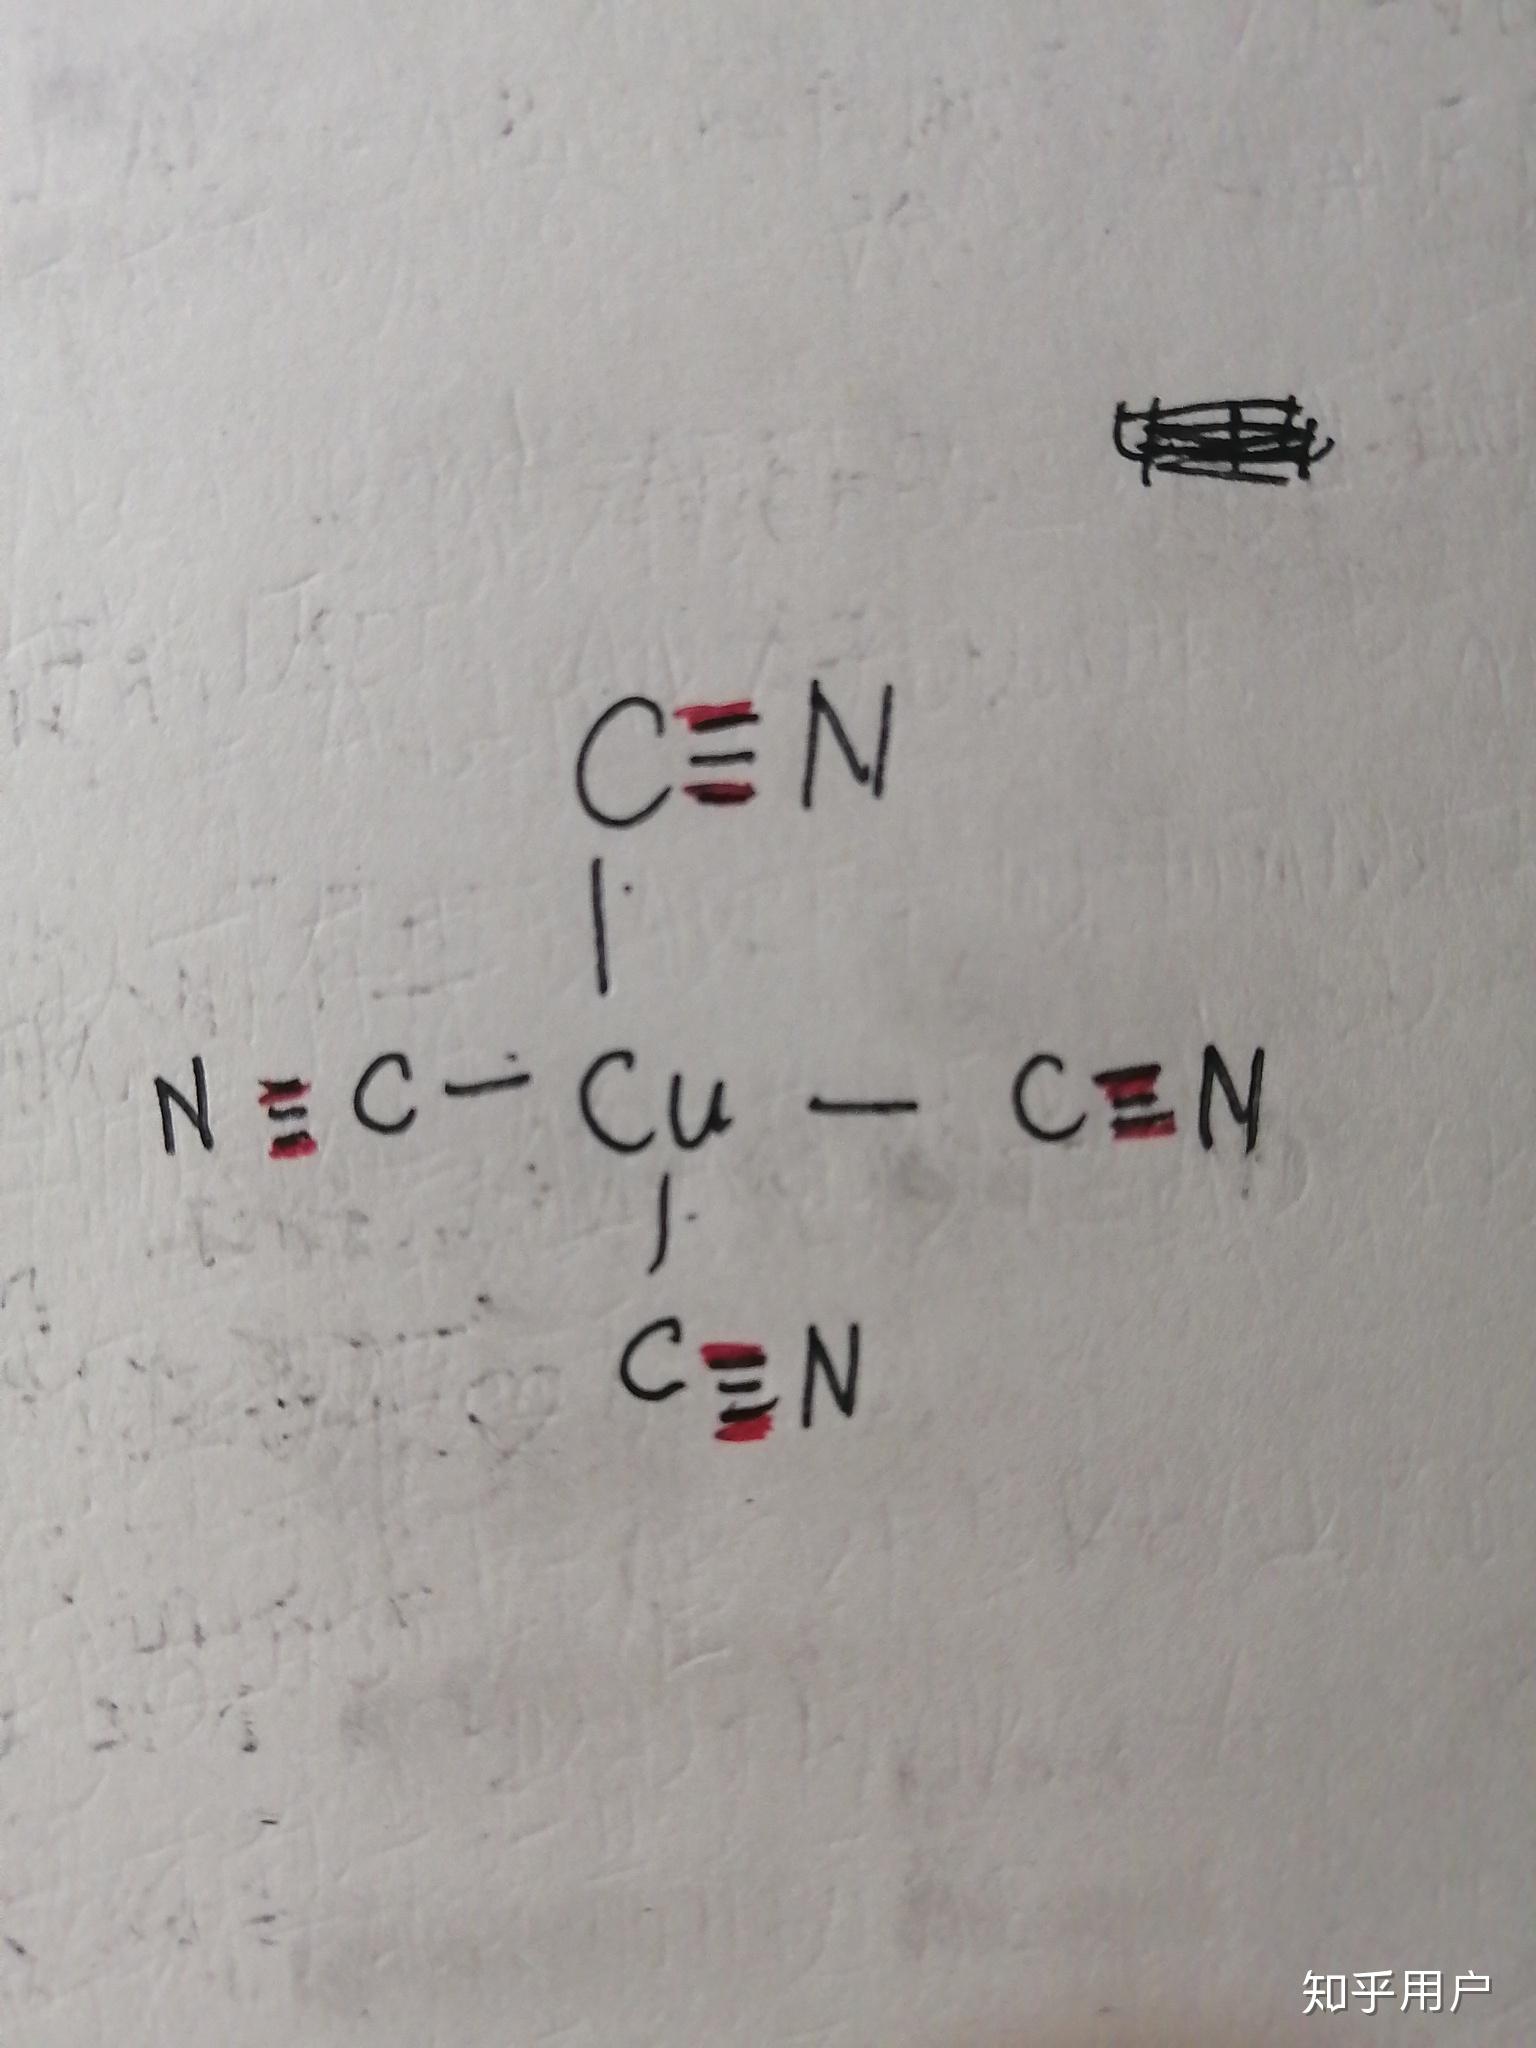 C≡N
|
N≡C—Cu—C≡N
|
C≡N
知乎用户